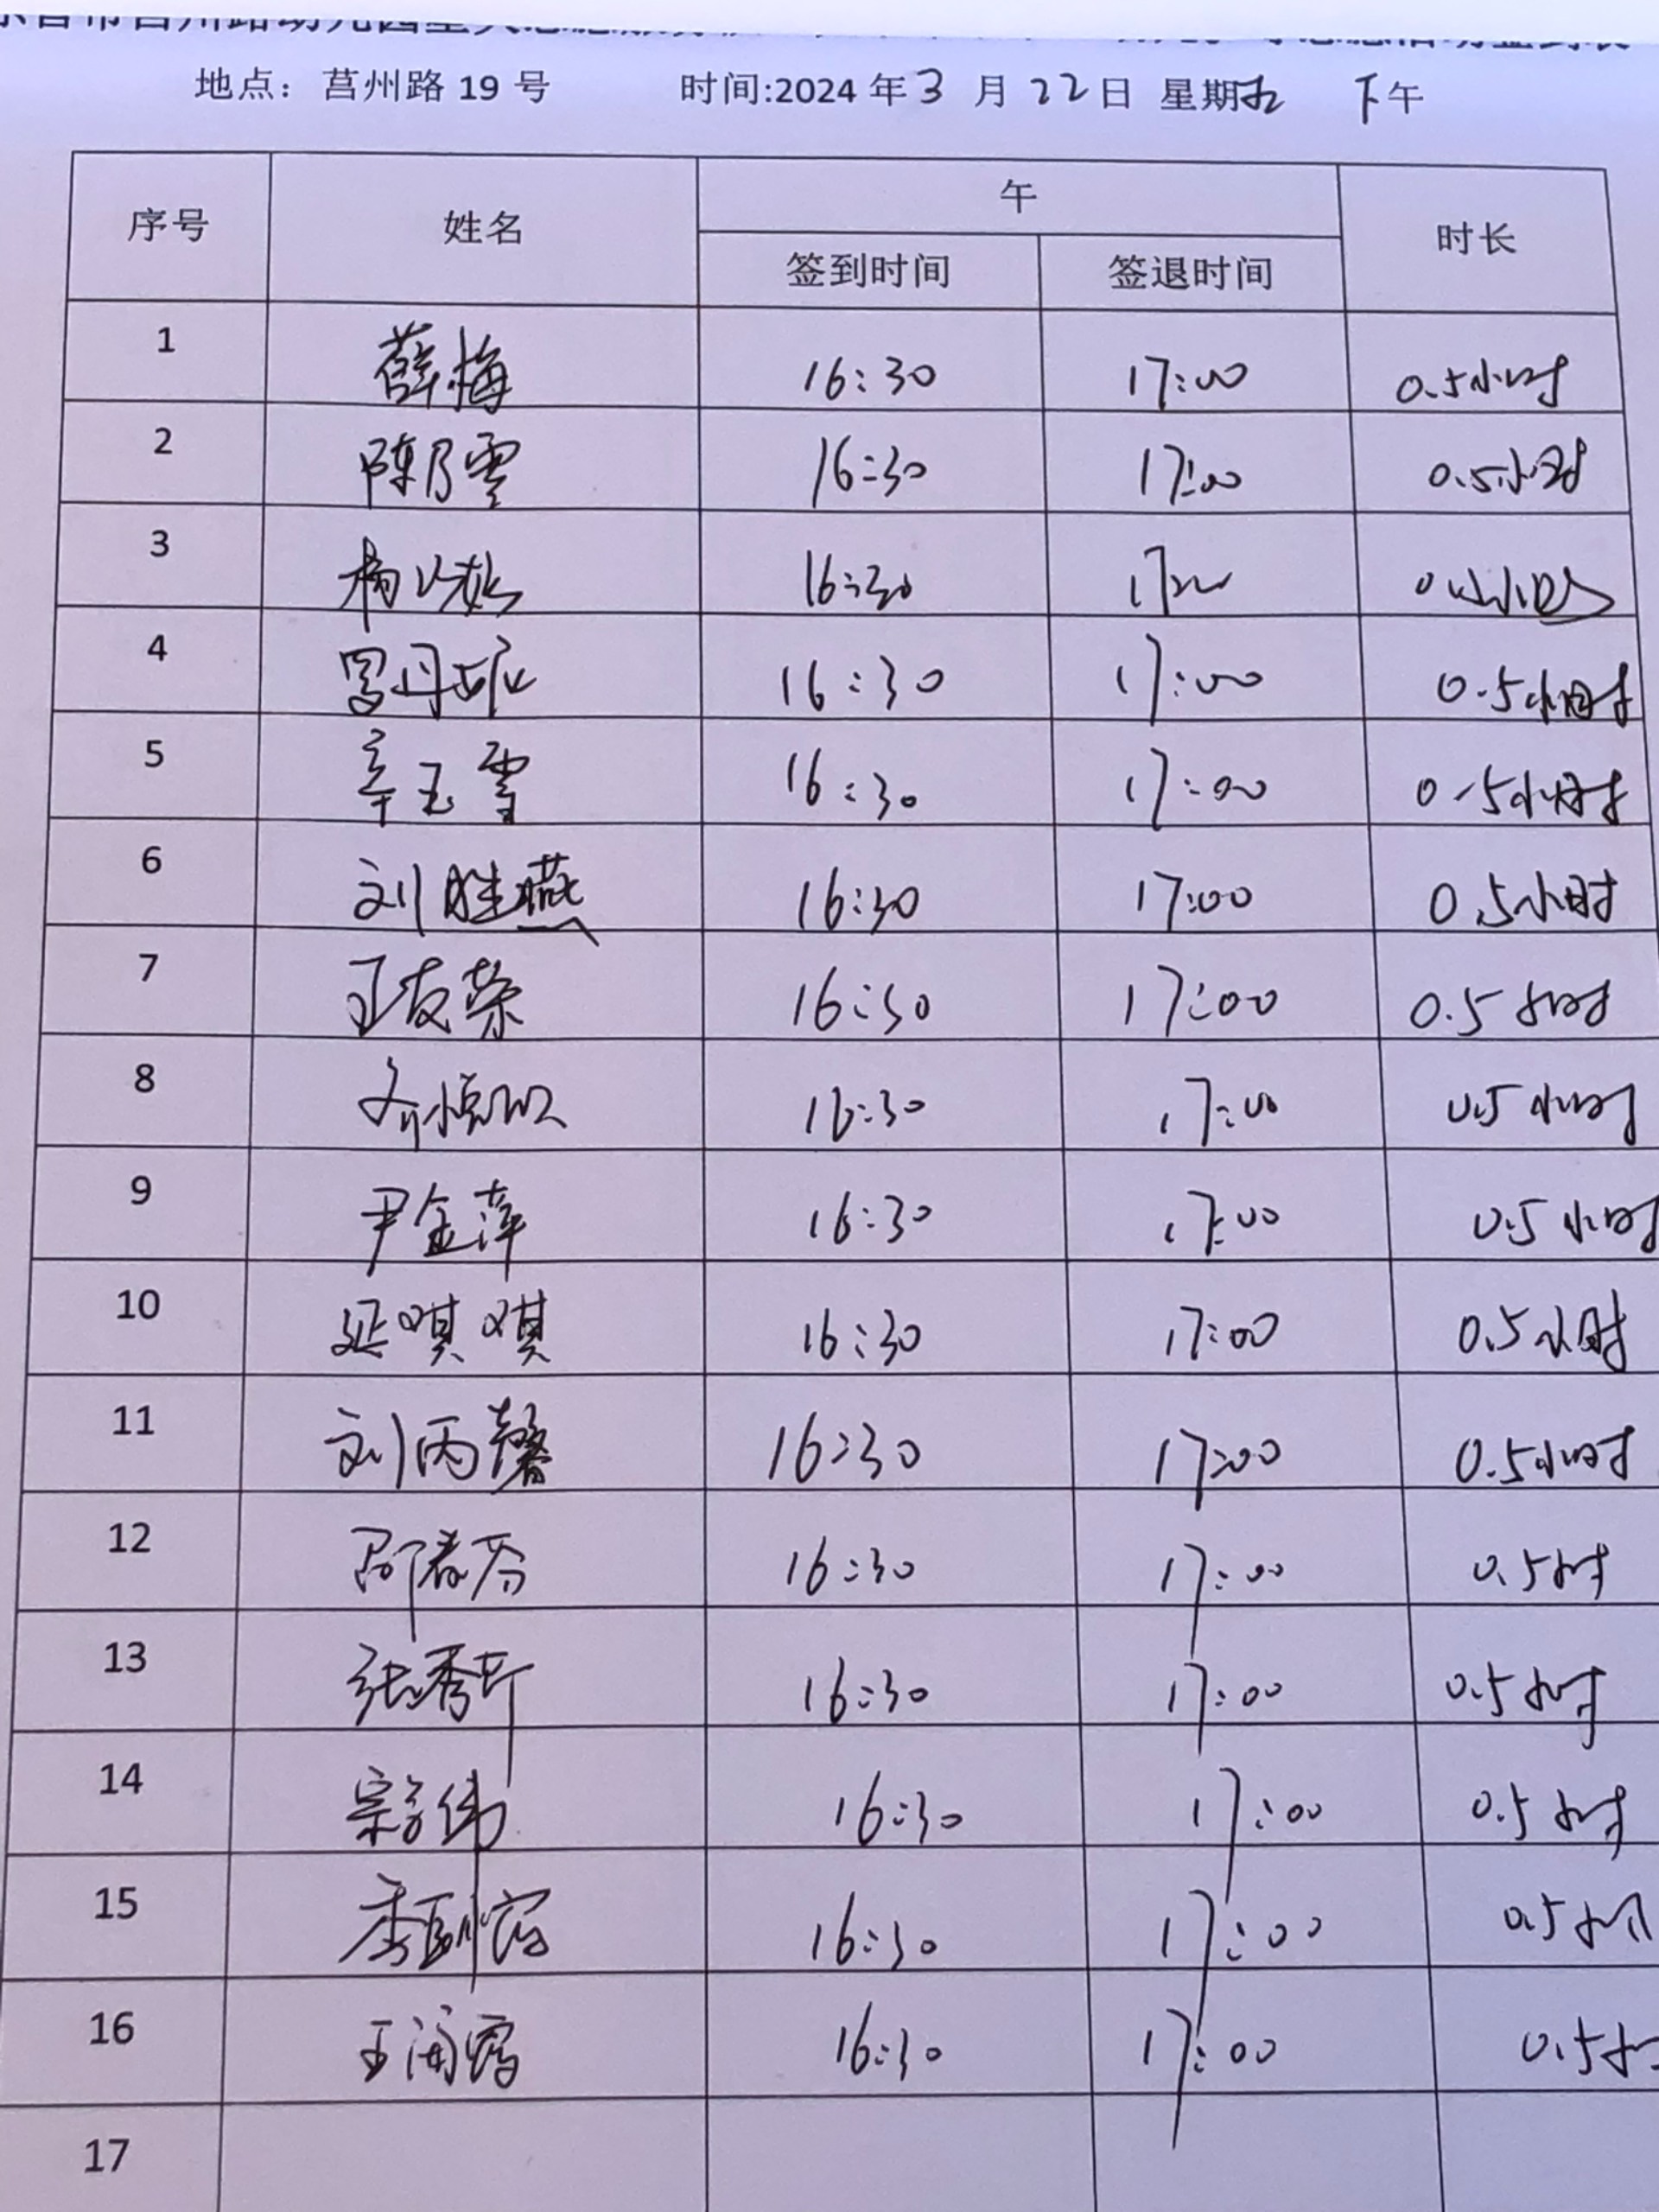 地点：莒州路 19 号 时间:2024 年 3 月 22 日 星期五 下午
序号 姓名 午 时长
签到时间 签退时间
1 薛梅 16:30 17:00 0.5小时
2 陈乃雪 16:30 17:00 0.5小时
3 杨 16:30 17:00 小时
4 罗丹 16:30 17:00 0.5小时
5 辛玉雪 16:30 17:00 0.5小时
6 刘胜燕 16:30 17:00 0.5小时
7 王友荣 16:30 17:00 0.5小时
8 16:30 17:00 0.5小时
9 尹金萍 16:30 17:00 0.5小时
10 延唭唭 16:30 17:00 0.5小时
11 刘丙馨 16:30 17:00 0.5小时
12 邵春芬 16:30 17:00 0.5小时
13 张秀芹 16:30 17:00 0.5小时
14 宗学伟 16:30 17:00 0.5小时
15 16:30 17:00 0.5小时
16 王 16:30 17:00 0.5小
17